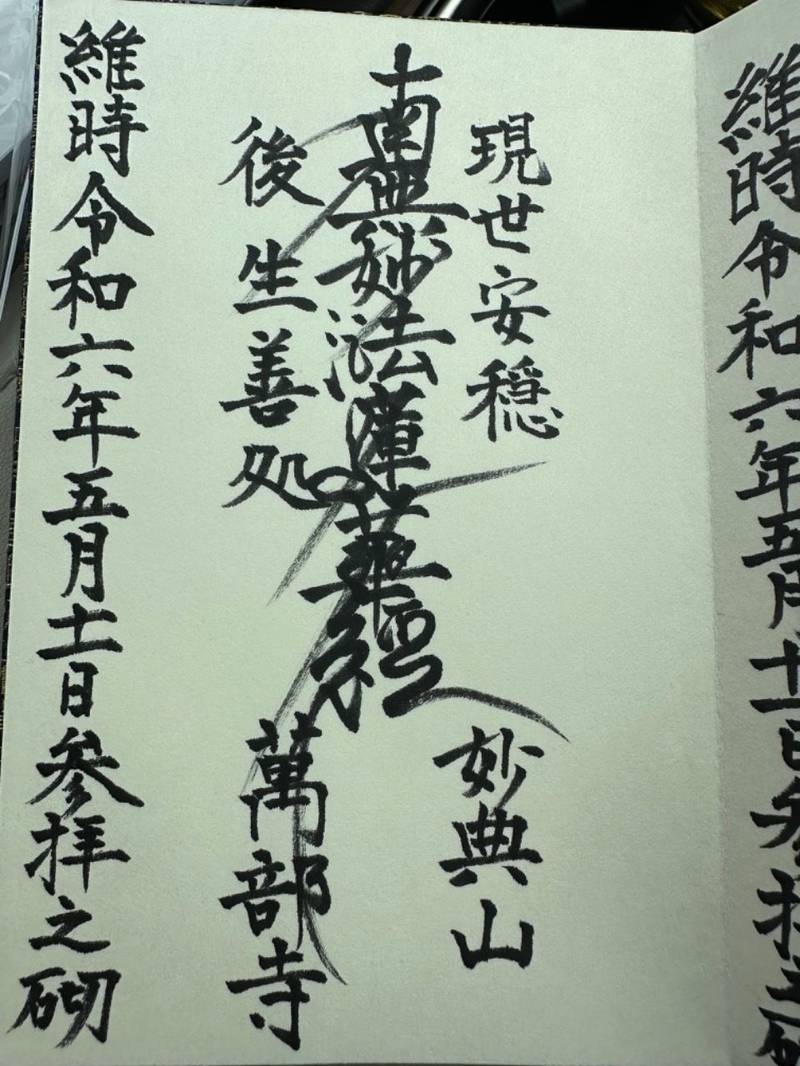 維時令和六年五月十一日参拝之砌
現世安穏
妙典山
南無妙法蓮華経
後生善処
萬部寺
維時令和六年五月十一日参拝之砌